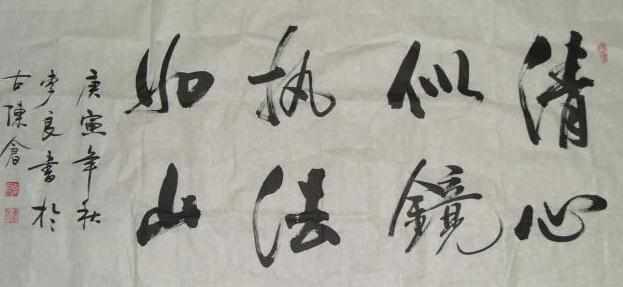 清心
似鏡
执法
如山
庚寅年秋
良書於
古陳倉